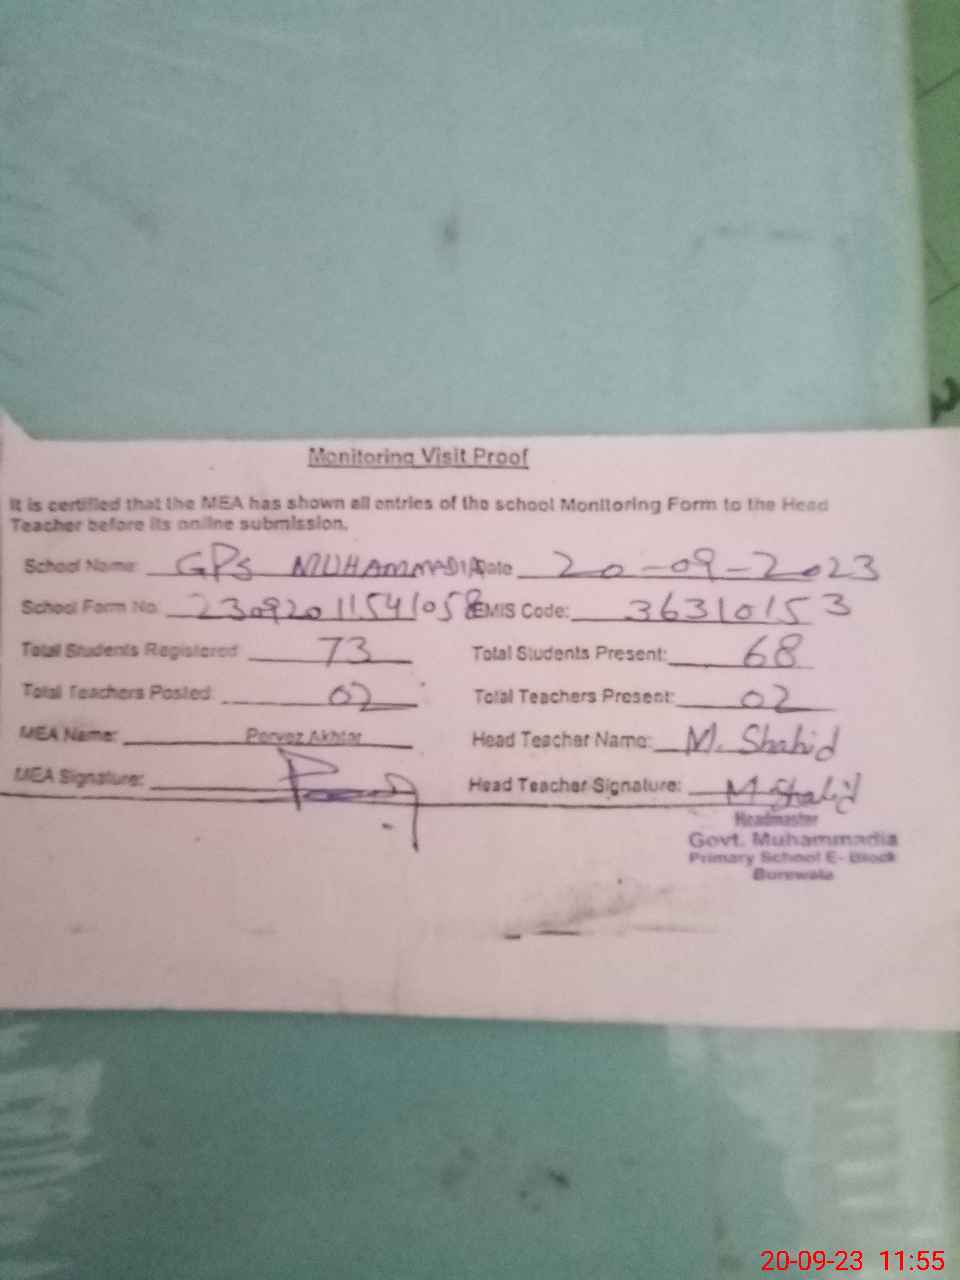 Monitoring Visit Proof
It is certified that the MEA has shown all entries of the school Monitoring Form to the Head
Teacher before its online submission.
School Name: GPS MUHAMMADIA Date 20-09-2023
School Form No: 23092011541058 EMIS Code: 36310153
Total Students Registered: 73 Total Students Present: 68
Total Teachers Posted: 02 Total Teachers Present: 02
MEA Name: Pervez Akhtar Head Teacher Name: M. Shahid
MEA Signature: Head Teacher Signature: M Shahid
Headmaster
Govt. Muhammadia
Primary School E- Block
Burewala
20-09-23 11:55